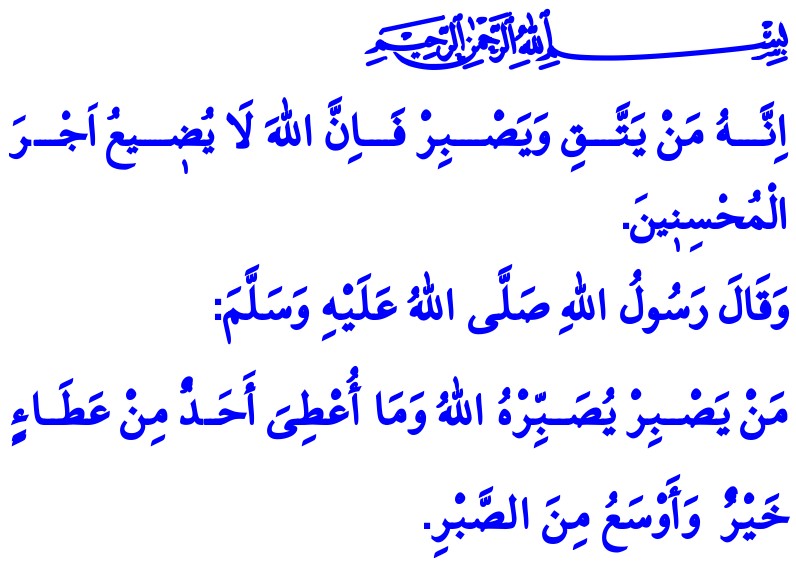 بِسْمِ اللهِ الرَّحْمٰنِ الرَّحِيمِ
اِنَّـــهُ مَنْ يَتَّـــقِ وَيَصْـــبِرْ فَـــاِنَّ اللهَ لَا يُضِـــيعُ اَجْـــرَ
الْمُحْسِنِينَ.
وَقَالَ رَسُولُ اللهِ صَلَّى اللهُ عَلَيْهِ وَسَلَّمَ:
مَنْ يَصْـــبِرْ يُصَـــبِّرْهُ اللهُ وَمَا أُعْطِىَ أَحَـــدٌ مِنْ عَطَـــاءٍ
خَيْرٌ وَأَوْسَعُ مِنَ الصَّبْرِ.